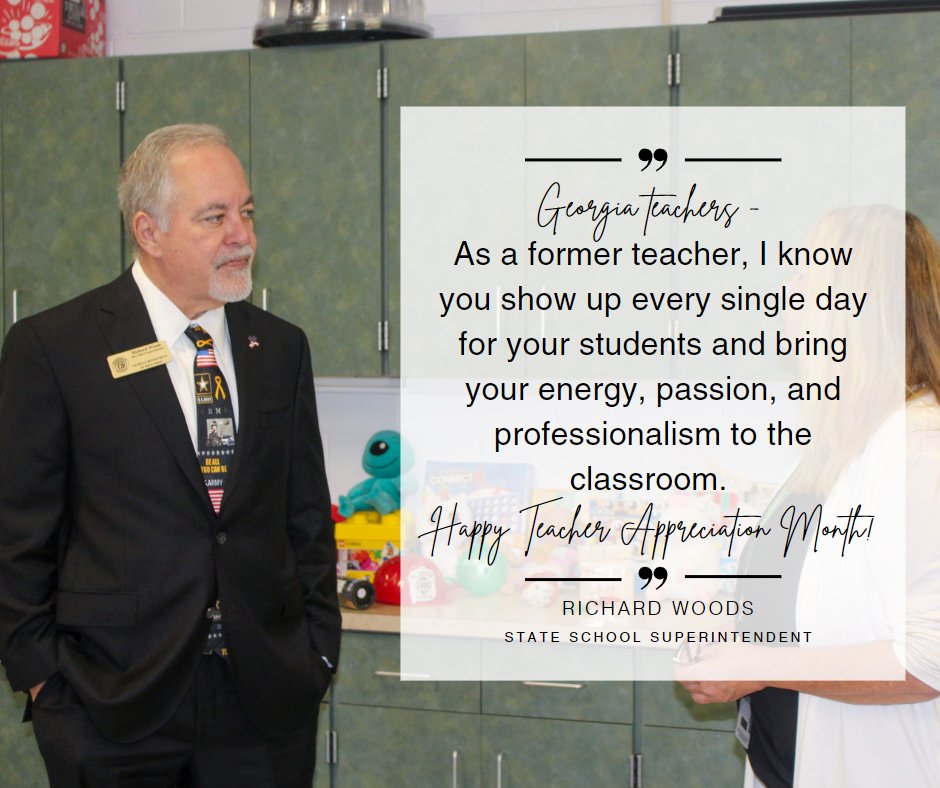 Georgia teachers -
As a former teacher, I know
you show up every single day
for your students and bring
your energy, passion, and
professionalism to the
classroom.
Happy Teacher Appreciation Month!
RICHARD WOODS
STATE SCHOOL SUPERINTENDENT
Richard Woods
U.S. ARMY
ARMY
BE ALL
YOU CAN BE
ARMY
CONNECT